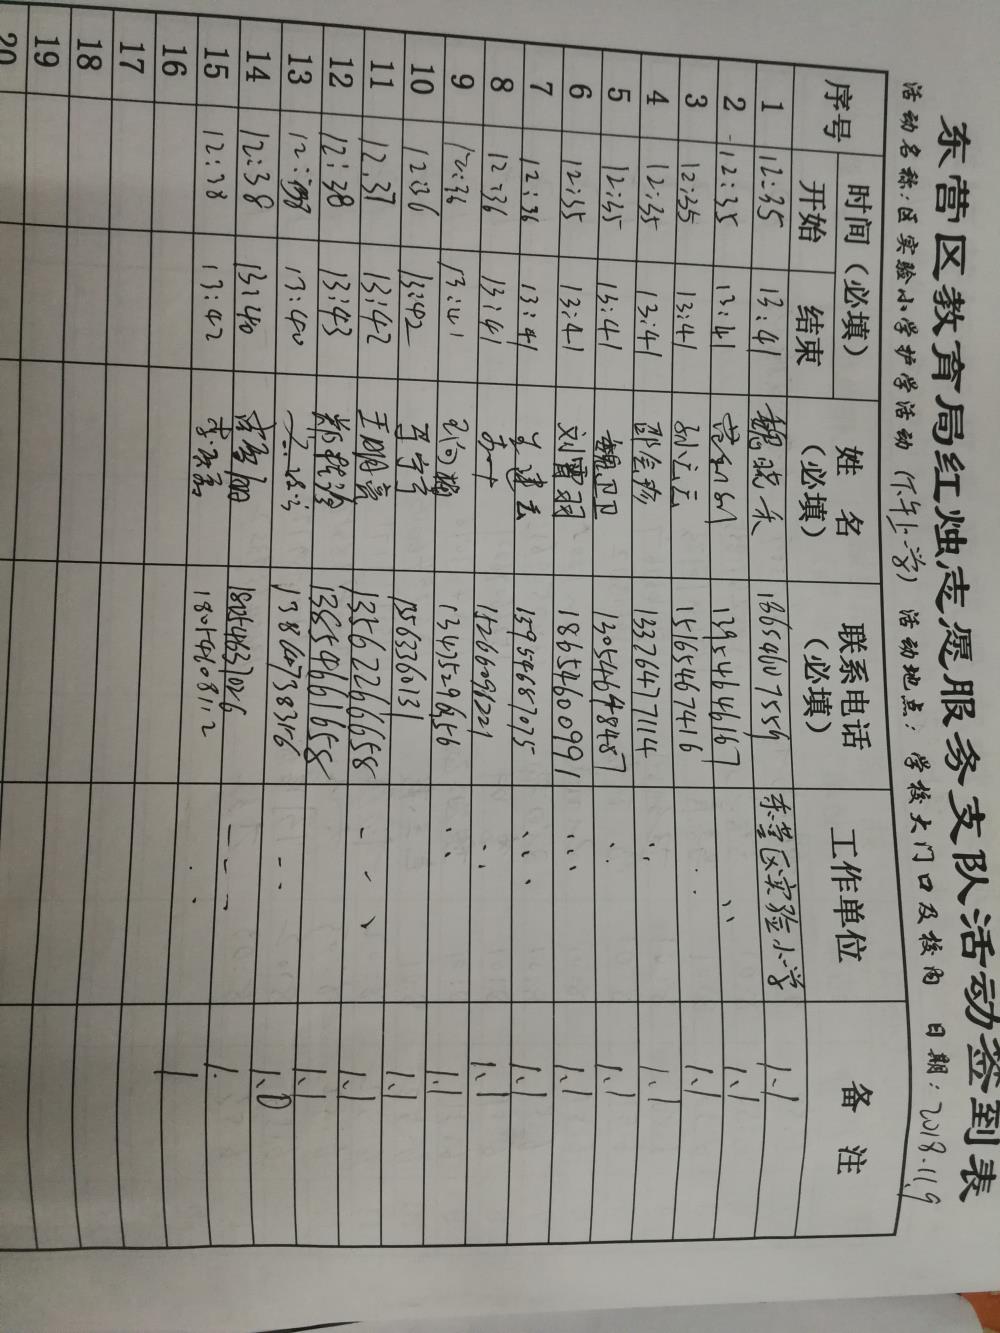 东营区教育局红烛志愿服务支队活动签到表
活动名称：区实验小学护学活动（下午上学） 活动地点：学校大门口及校内 日期：2018.11.9
序号 时间（必填） 姓名（必填） 联系电话（必填） 工作单位 备注
开始 结束
1 12:35 13:41 魏晓 18654607559 东营区实验小学 1.1
2 12:35 13:41 13954646167 〃 1.1
3 12:35 13:41 孙云云 15165467416 1.1
4 12:35 13:41 邵金珍 13376477114 1.1
5 12:35 13:41 魏卫卫 13054648487 1.1
6 12:35 13:41 刘雪羽 18654600991 1.1
7 12:36 13:41 15954687075 1.1
8 12:36 13:41 15266096221 1.1
9 12:36 13:41 13435296956 1.1
10 12:36 13:42 15563360131 1.1
11 12.37 13:42 王明亮 13562266658 1.1
12 12:38 13:43 13654661658 1.1
13 13:40 13864738356 1.1
14 12:38 13:40 18054637026 1.0
15 12:38 13:42 18054608112 1.
16 1
17
18
19
20